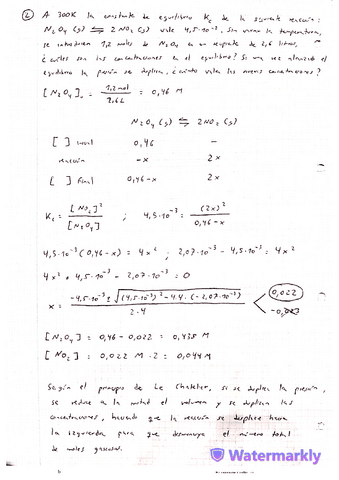 2) A 300K la constante de equilibrio Kc de la siguiente reacción:
N2O4 (g) ⇌ 2NO2 (g) vale 4,5·10⁻³. Sin variar la temperatura,
se introducen 1,2 moles de N2O4 en un recipiente de 2,6 litros,
¿cuáles son las concentraciones en el equilibrio? Si una vez alcanzado el
equilibrio la presión se duplica, ¿cuánto valen las nuevas concentraciones?
[N2O4]₀ = 1,2 mol / 2,6 L = 0,46 M
N2O4 (g) ⇌ 2NO2 (g)
[ ] inicial 0,46 -
reacción -x 2x
[ ] Final 0,46-x 2x
Kc = [NO2]² / [N2O4] ; 4,5·10⁻³ = (2x)² / 0,46-x
4,5·10⁻³ (0,46-x) = 4x² ; 2,07·10⁻³ - 4,5·10⁻³ = 4x²
4x² + 4,5·10⁻³ - 2,07·10⁻³ = 0
x = -4,5·10⁻³ ± √(4,5·10⁻³)² - 4·4·(-2,07·10⁻³) / 2·4 0,022
-0,023
[N2O4] = 0,46 - 0,022 = 0,438 M
[NO2] = 0,022 M · 2 = 0,044 M
Según el principio de Le Chatelier, si se duplica la presión,
se reduce a la mitad el volumen y se duplican las
concentraciones, haciendo que la reacción se desplace hacia
la izquierda para que disminuya el número total
de moles gaseosos.
Watermarkly